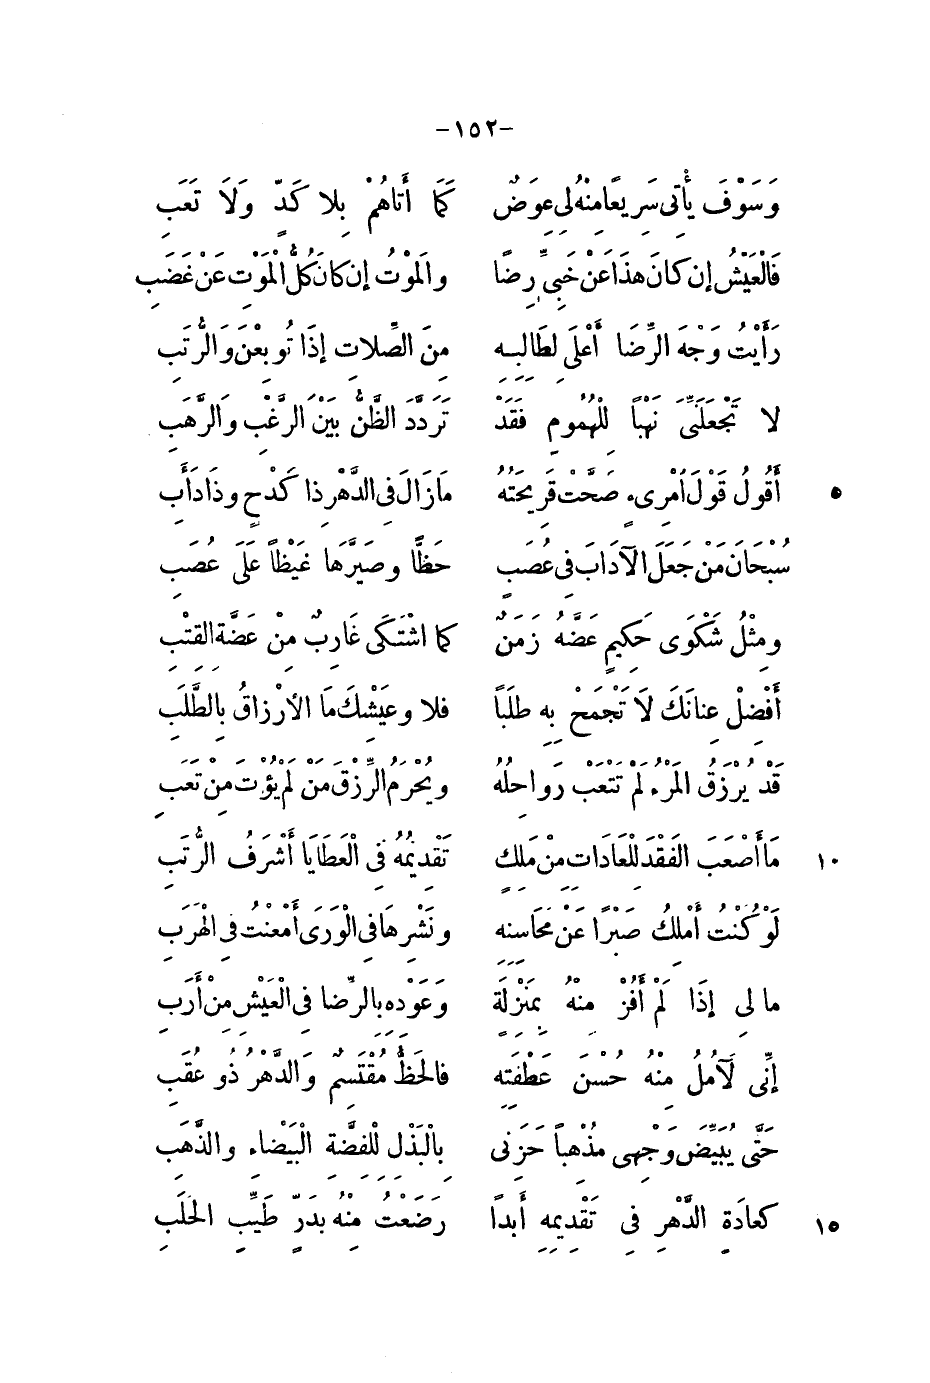 -١٥٢-
وَسَوْفَ يَأْتِى سَرِيعًا مِنْهُ لِى عِوَضٌ كَمَا أَتَاهُمْ بِلا كَدٍّ وَلَا تَعَبِ
فَالْعَيْشُ إِن كانَ هذَا عَنْ خَبِىِّ رِضًا والْمَوْتُ إِن كانَ كُلُّ الْمَوْتِ عَنْ غَضَبِ
رَأَيْتُ وَجْهَ الرِّضَا أَعْلَى لِطَالِبِهِ مِنَ الصِّلاتِ إِذَا تُوبِعْنَ وَالرُّتَبِ
لا تَجْعَلَنِّى نَهْباً لِلْهُمومِ فَقَدْ تَرَدَّدَ الظَّنُّ بَيْنَ الرَّغْبِ وَالرَّهَبِ
أَقُولُ قَوْلَ امْرِىءٍ صَحَّتْ قَرِيحَتُهُ مَا زَالَ فِى الدَّهْرِ ذا كَدْحٍ وذَا دَأَبِ ٥
سُبْحَانَ مَنْ جَعَلَ الآدَابَ فِى عُصَبٍ حَظًّا وصَيَّرَهَا غَيْظاً عَلَى عُصَبِ
ومِثْلُ شَكْوَى حَكِيمٍ عَضَّهُ زَمَنٌ كما اشْتَكَى غَارِبٌ مِنْ عَضَّةِ القَتَبِ
أَفْضِلْ عِنانَكَ لَا تَجْمَحْ بِهِ طلَبًا فلا وعَيْشِكَ مَا الأرْزاقُ بِالطَّلَبِ
قَدْ يُرْزَقُ المَرْءُ لَمْ تَتْعَبْ رَوَاحِلُهُ ويُحْرَمُ الرِّزْقَ مَنْ لَمْ يُؤْتَ مِنْ تَعَبِ
مَا أَصْعَبَ الفَقْدَ لِلْعَادَاتِ مِنْ مَلِكٍ تَقْدِيمُهُ فِى الْعَطَايَا أَشْرَفُ الرُّتَبِ ١٠
لَوْ كُنْتُ أَمْلِكُ صَبْرًا عَنْ مَحَاسِنِهِ ونَشْرِهَا فِى الْوَرَى أَمْعَنْتُ فِى الْهَرَبِ
ما لِى إِذَا لَمْ أَفُزْ مِنْهُ بِمَنْزِلَةٍ وَعَوْدِهِ بِالرِّضا فِى الْعَيْشِ مِنْ أَرَبِ
إِنِّى لَآمُلُ مِنْهُ حُسْنَ عَطْفَتِهِ فالحَظُّ مُقْتَسَمٌ وَالدَّهْرُ ذُو عُقَبِ
حَتَّى يُبَيِّضَ وَجْهِى مُذْهِباً حَزَنِى بِالْبَذْلِ لِلْفِضَّةِ الْبَيْضَاءِ والذَّهَبِ
كعادَةِ الدَّهْرِ فِى تَقْدِيمِهِ أَبداً رَضَعْتُ مِنْهُ بِدَرٍّ طَيِّبِ الحَلَبِ ١٥